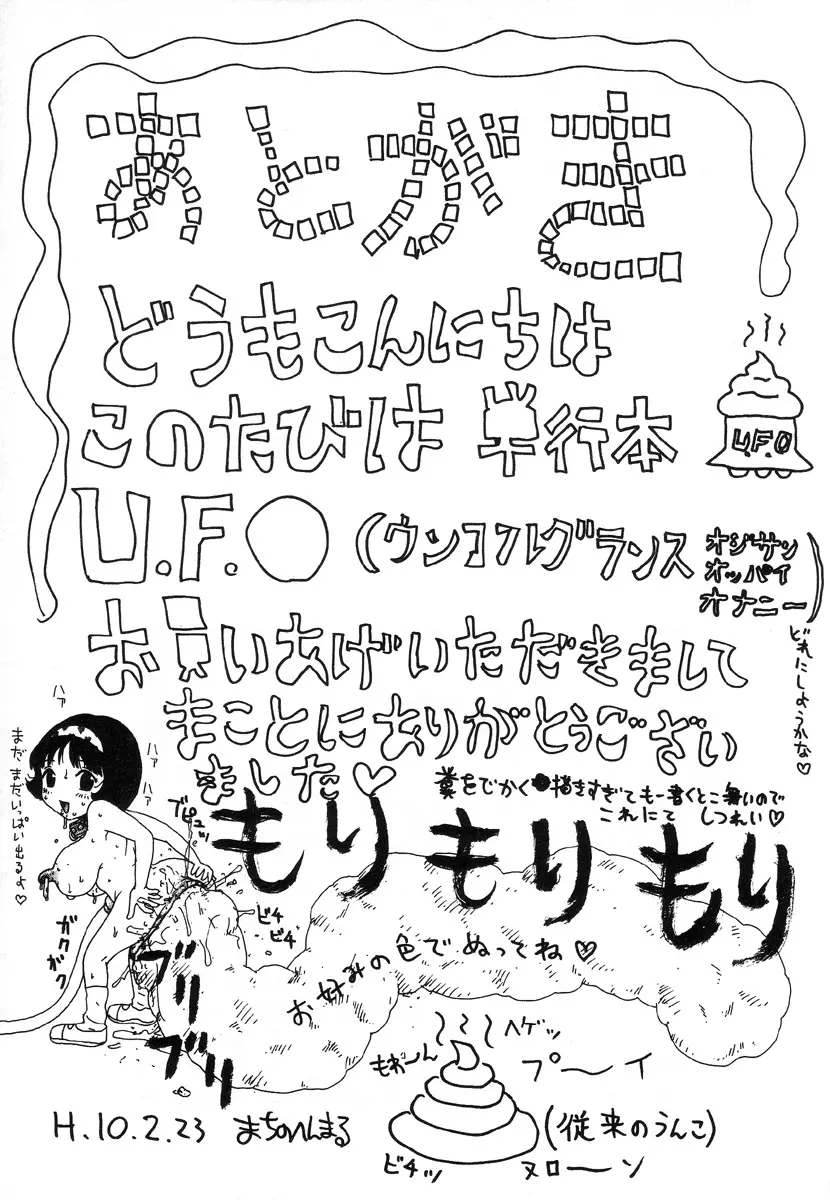 あとがき
どうもこんにちは
このたびは 単行本
U.F.O
U.F.O (ウンコフルグランス オジサン
オッパイ
オナニー)
どれにしようかな♡
お買いあげいただきまして
まことにありがとうござい
ました♡
糞をでかく描きすぎてもー書くとこ無いので
これにて しつれい♡
ハァ
ハァ
ハァ
まだまだいっぱい出るよ♡
ブビュッ
もり もり もり
ビチ
ビチ
ガク
ガク
ブリ
ブリ
お好みの色でぬってね♡
ヘゲッ
もわーん
プ〜イ
H.10.2.23
(従来のうんこ)
ビチッ
ヌロ〜ン